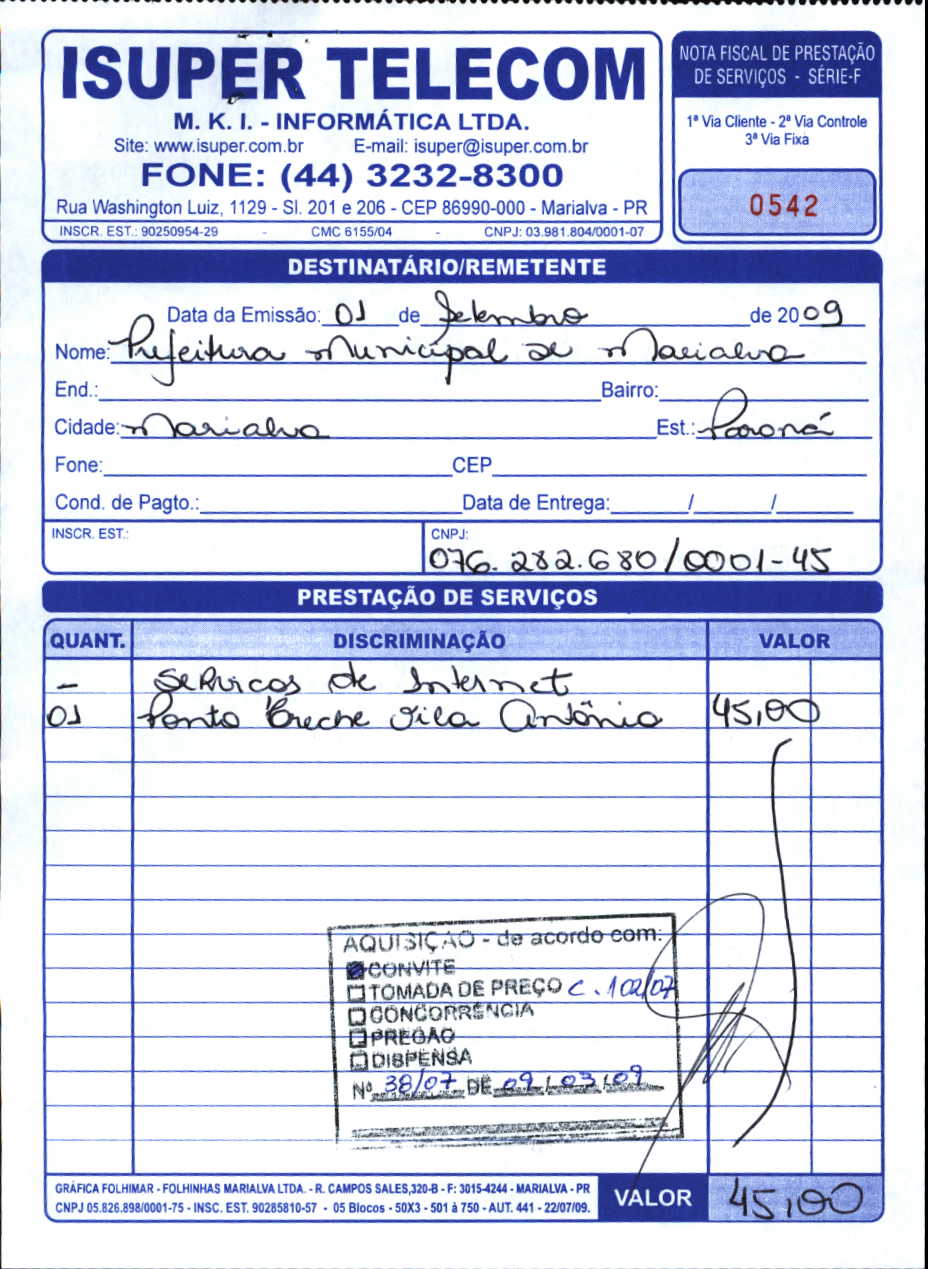 ISUPER TELECOM
M. K. I. - INFORMÁTICA LTDA.
Site: www.isuper.com.br E-mail: isuper@isuper.com.br
FONE: (44) 3232-8300
Rua Washington Luiz, 1129 - Sl. 201 e 206 - CEP 86990-000 - Marialva - PR
INSCR. EST.: 90250954-29 - CMC 6155/04 - CNPJ: 03.981.804/0001-07
NOTA FISCAL DE PRESTAÇÃO
DE SERVIÇOS - SÉRIE-F
1ª Via Cliente - 2ª Via Controle
3ª Via Fixa
0542
DESTINATÁRIO/REMETENTE
Data da Emissão: 01 de Setembro de 2009
Nome: Prefeitura Municipal de Marialva
End.: Bairro:
Cidade: Marialva Est.: Paraná
Fone: CEP
Cond. de Pagto.: Data de Entrega: / /
INSCR. EST.: CNPJ:
076.282.680/0001-45
PRESTAÇÃO DE SERVIÇOS
QUANT. DISCRIMINAÇÃO VALOR
- Servicos de Internet
01 Ponto Creche Vila Antônio 45,00
AQUISIÇAO - de acordo com:
CONVITE
TOMADA DE PREÇO C. 102/07
CONCORRÊNCIA
PREGÃO
DISPENSA
Nº 38/07 DE 09/03/09
GRÁFICA FOLHIMAR - FOLHINHAS MARIALVA LTDA. - R. CAMPOS SALES,320-B - F: 3015-4244 - MARIALVA - PR
CNPJ 05.826.898/0001-75 - INSC. EST. 90285810-57 - 05 Blocos - 50X3 - 501 à 750 - AUT. 441 - 22/07/09.
VALOR 45,00